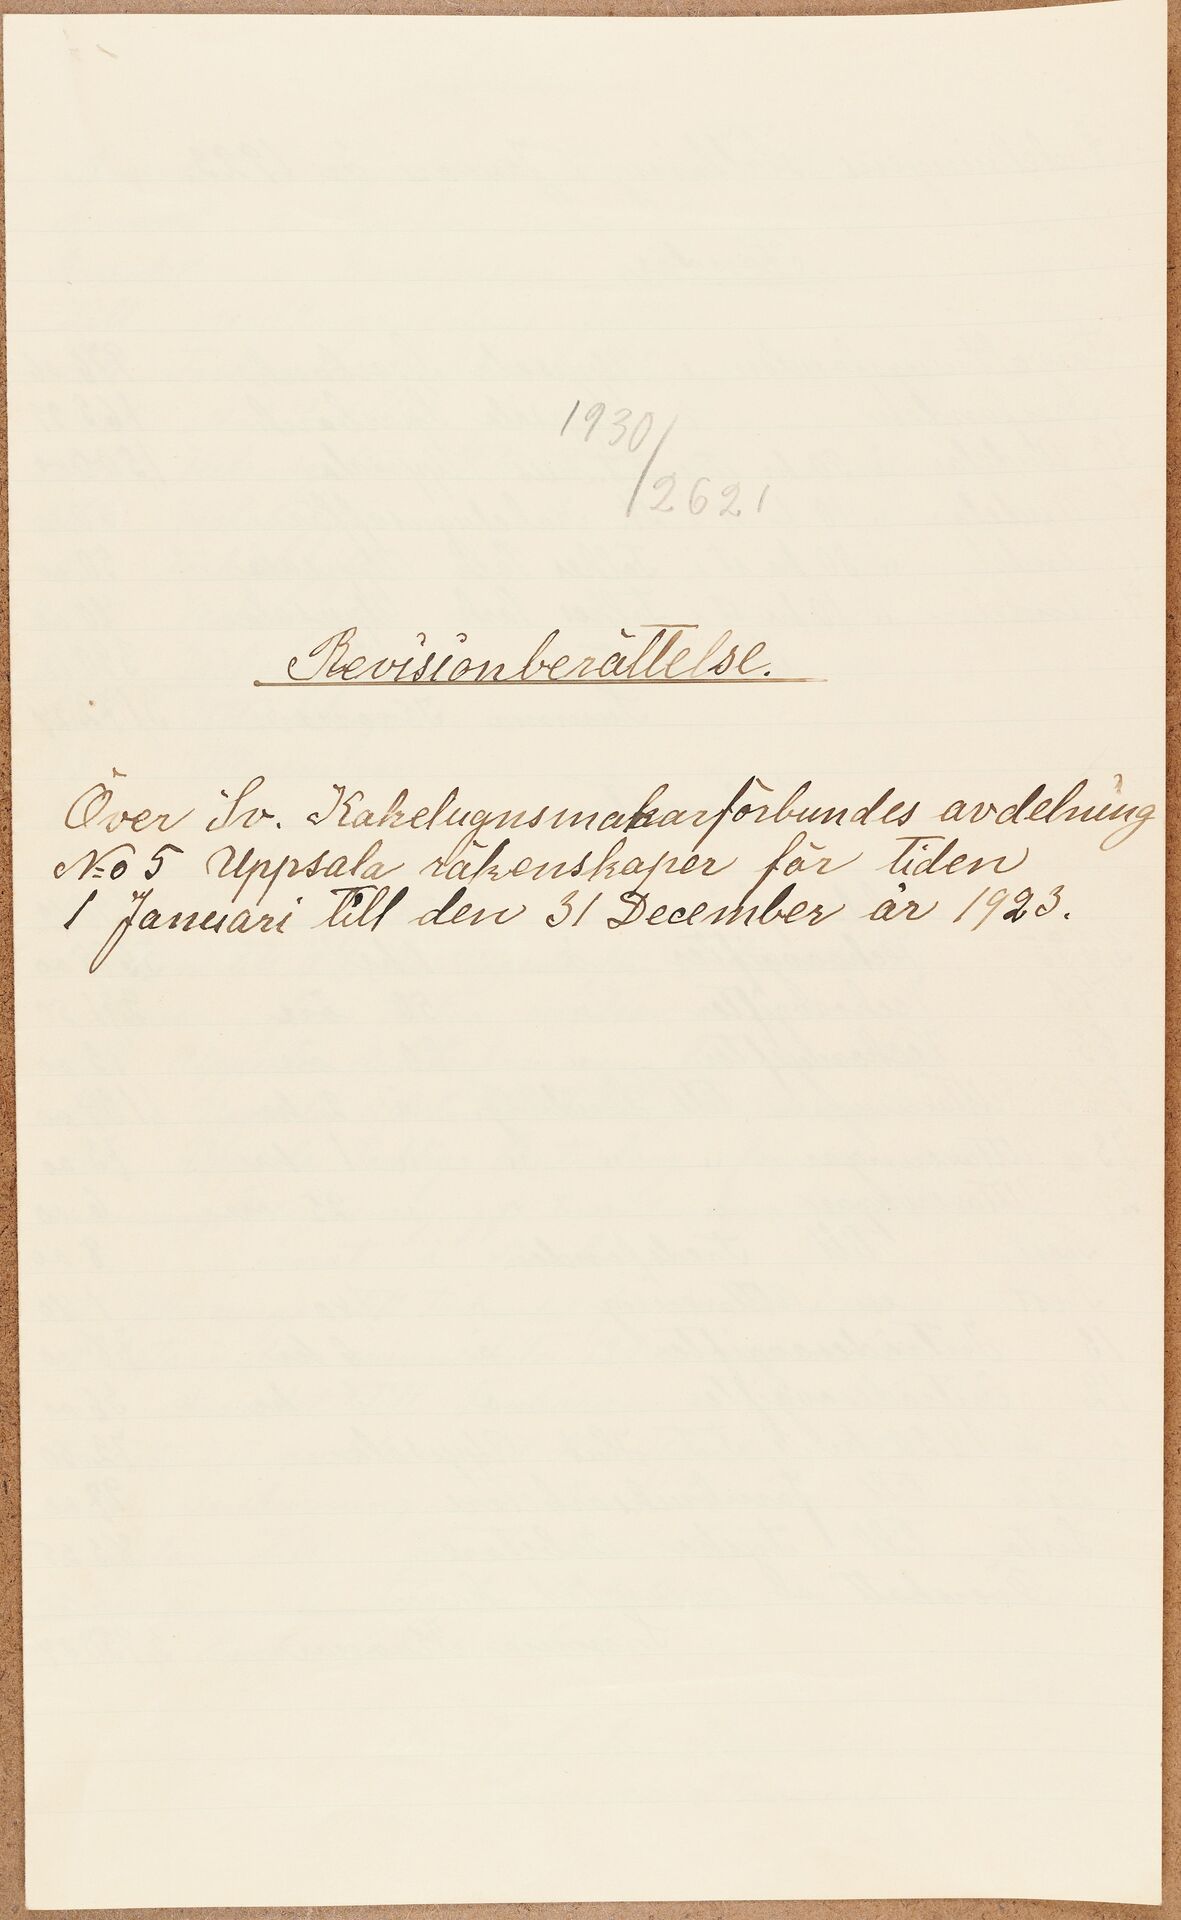 1930/
2621
Revisionberättelse.
Över Sv. Kakelugnsmakarförbundes avdelning
No 5 Uppsala räkenskaper för tiden
1 Januari till den 31 December år 1923.